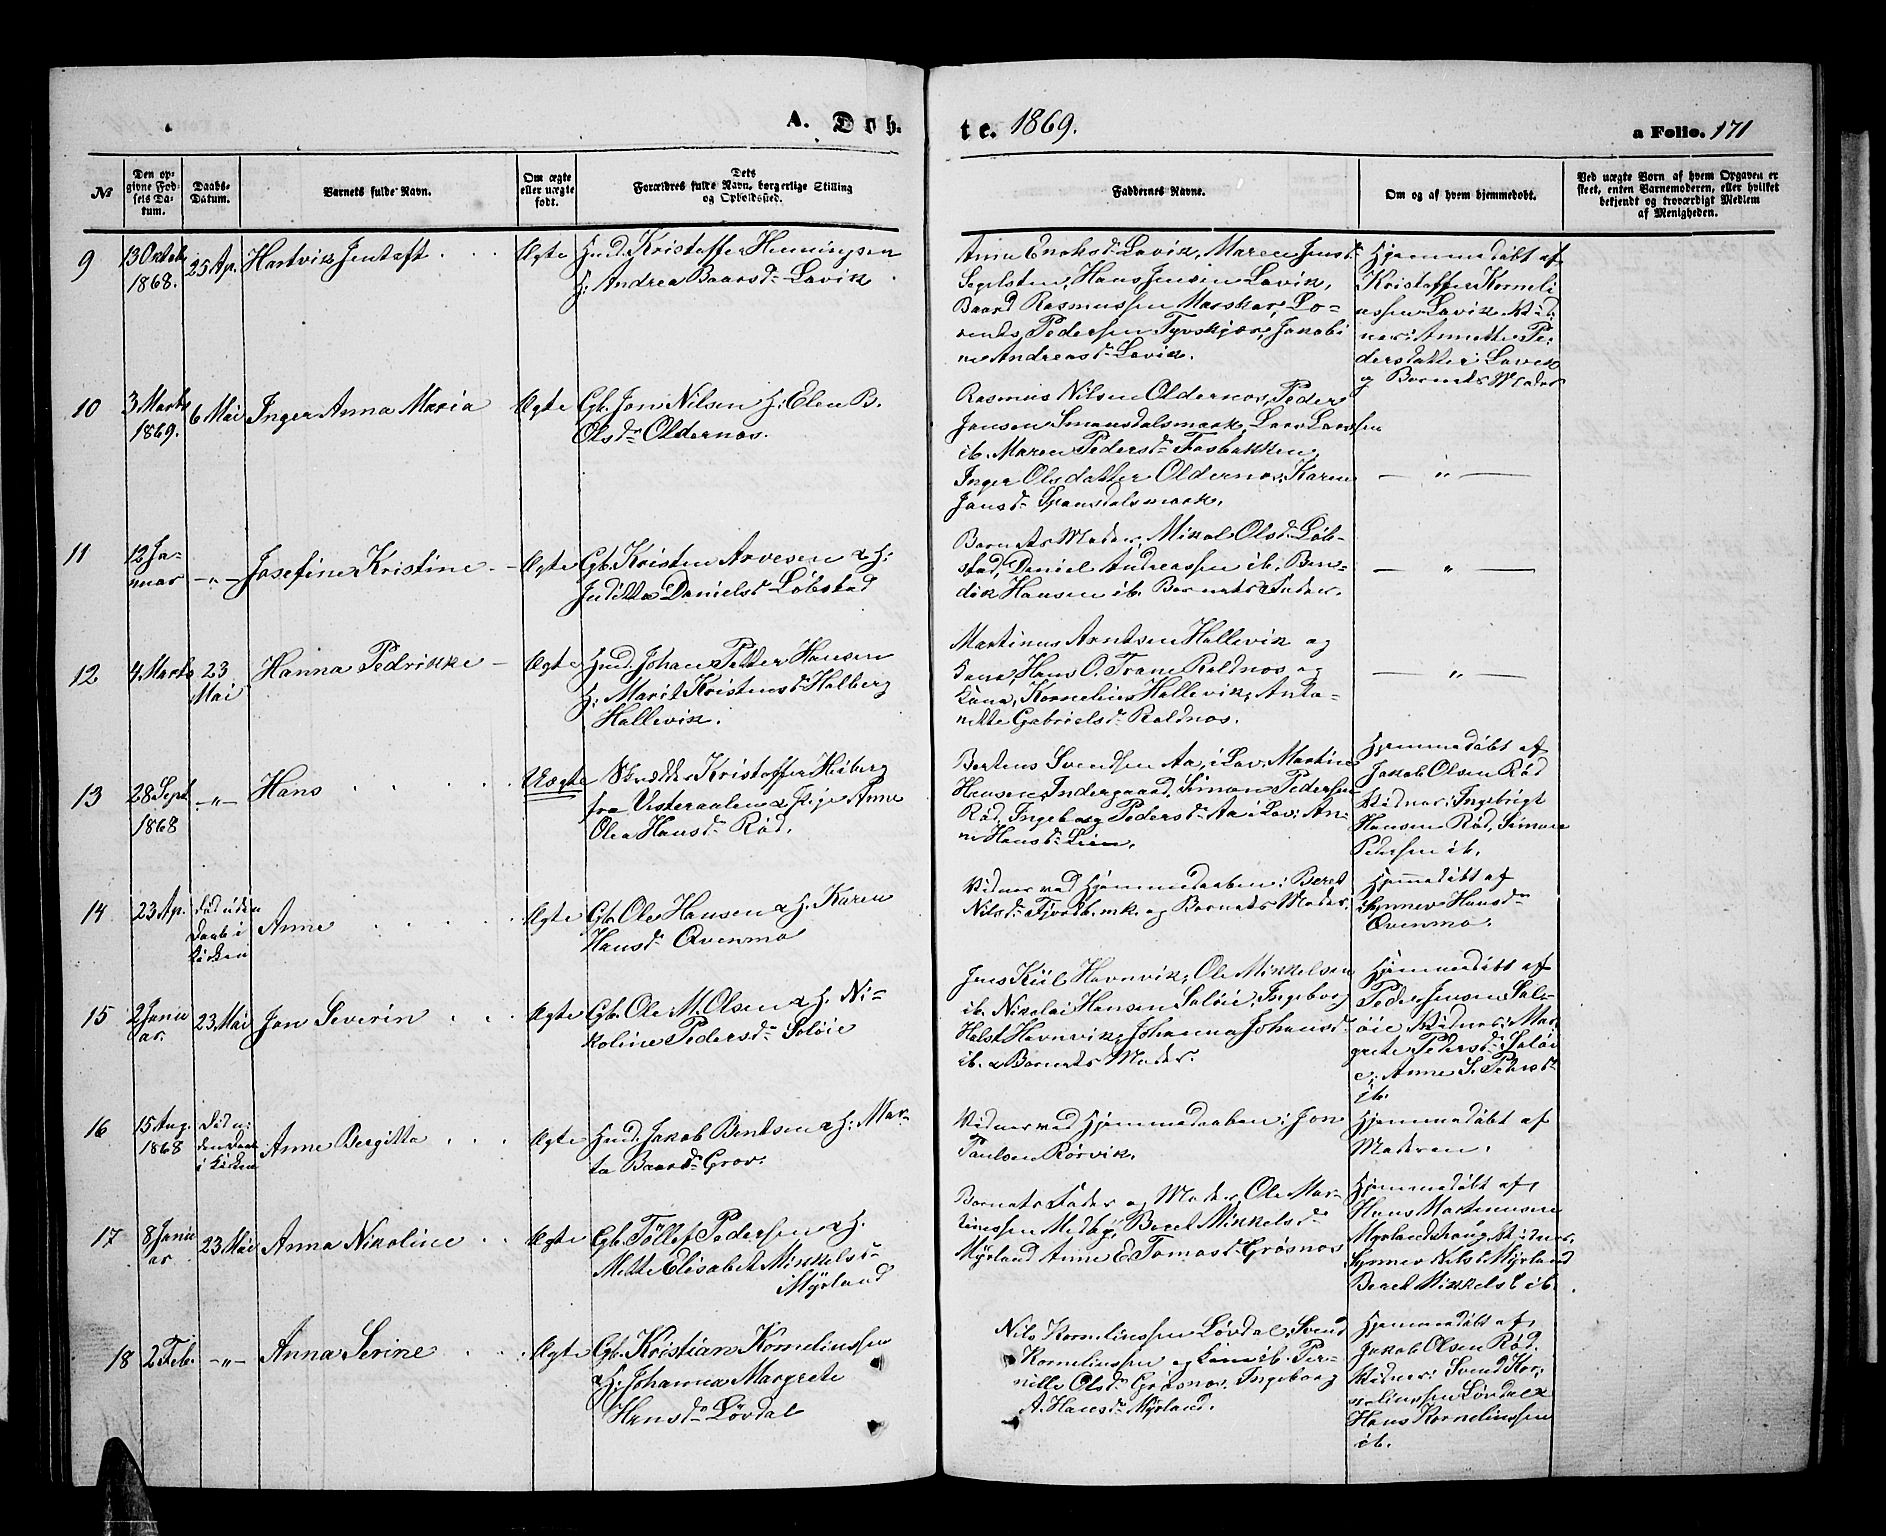 A. Døb-
te. 1869.
a Folio. 171
№
Den op-
givne Fød-
sels Da-
tum.
Daabs-
Datum.
Barnets fulde Navn.
Om ægte
eller uægte
født.
Dets
Forældres fulde Navn, borgerlige Stilling
og Opholdssted.
Faddernes Navne.
Om og af hvem hjemmedøbt.
Ved uægte Børn af hvem Opgaven er
skeet, enten Barnemoderen, eller hvilket
bekjendt og troværdigt Medlem
af Menigheden.
9
13 Oktob.
1868.
25 Ap.
Hartvik Jentoft
Ægte
Hmd. Kristoffer Henningsen
H: Andrea Baarsd. Lavik
Anne Enoksd. Lavik, Maren Jensd.
Segelsten, Hans Jensen Lavik,
Baard Rasmussen, Lo-
rents Pedersen Tyvskjær, Jakobi-
ne Andreasd. Lavik.
Hjemmedøbt af
Kristoffer Korneli
ussen Lavik, Vid
ner: Annette Pe
dersdatter Lavik
og Barnets Moder
10
3 Marts
1869.
6 Mai
Inger Anna Maria
Ægte
Gb. Jon Nilsen H: Elen B.
Olsdr. Oldernæs.
Rasmus Nilsen Oldernæs, Peder
Jonsen Spansdalsmark, Lars Larssen
ib. Maren Pedersd. Fosbakken,
Inger Olsdatter Oldernæs, Karen
Jonsd. Spansdalsmark.
— " —
11
12 Ja-
nuar
— " —
Josefine Kristine
Ægte
Gb. Kristen Arvesen & H:
Juditta Danielsd. Løbstad
Barnets Moder, Mikal Olsd. Løb-
stad, Daniel Andreassen ib. Ben-
dik Hansen ib. Barnets Fader.
— " —
12
4 Marts
23
Mai
Hanna Pedrikke
Ægte
Hmd. Johan Petter Hansen
H: Marit Kristensd. Halberg
Hallevik.
Martinus Arntsen Hallevik og
Kona, Hans O. Trane Roldnæs og
Kona, Kornelius Hallevik, Anto-
nette Gabrielsd. Roldnæs.
— " —
13
28 Sept
1868
— " —
Hans
Uægte
Skrædder Kristoffer Heiberg
fra Vesteraalen & Pige Anne
Olea Hansd. Rød.
Bertens Svendsen Aa, i Lav., Martin
Hansen Indergaard, Simon Pedersen
Rød, Ingeborg Pedersd. Aa i Lav: An-
ne Hansd. Lien.
Hjemmedøbt af
Jakob Olsen Rød
Vidner: Ingebrigt
Hansen Rød, Simon
Pedersen ib.
14
23 Ap.
død uden
Daab i
Kirken
Anne
Ægte
Gb. Ole Hansen & H. Karen
Hansd. Qvenmo
Vidner ved Hjemmedaaben: Beret
Nilsd. Fjordb.mk. og Barnets Moder.
Hjemmedøbt af
Synnev Hansd.
Qvenmo.
15
2 Janu
ar.
23 Mai
Jon Severin
Ægte
Gb. Ole M. Olsen & H. Ni-
koline Pedersd. Soløie
Jens Kiil Havnvik, Ole Mikkelsen
ib. Nikolai Hansen Soløie, Ingeborg
Holst Havnvik, Johanna Johansd.
ib. & Barnets Moder.
Hjemmedøbt af
Peder Jensen Sol-
øie Vidner: Mar
grete Pedersd. Soløi
e, Anne S. Pedersd.
ib.
16
15 Aug.
1868
Død u-
den Daab
i Kirken
Anne Bergitta
Ægte
Hmd. Jakob Bentsen & H: Mar-
ta Baarsd. Grov.
Vidner ved Hjemmedaaben: Jon
Paulsen Rørvik.
Hjemmedøbt af
Moderen.
17
8 Janu
ar
23 Mai
Anna Nikoline
Ægte
Gb. Tollef Pedersen & H.
Mette Elisabet Mikkelsd.
Myrland
Barnets Fader og Moder, Ole Mar-
tinussen Medby, Beret Mikkelsd.
Myrland Anne E. Tomasd. Grøsnæs
Hjemmedøbt af
Hans Martinussen
Myrlandshaug Vidner,
Synnev Nilsd. Myrland
Beret Mikkelsd. ib.
18
2 Feb.
— " —
Anna Serine
Ægte
Gb. Kristian Korneliussen
& H: Johanna Margrete
Hansdr. Løvdal
Nils Korneliussen Løvdal, Svend
Korneliussen og Kone ib. Per-
nille Olsdr. Grøsnæs. Ingeborg
A. Hansd. Myrland.
Hjemmedøbt af
Jakob Olsen Rød.
Vidner: Svend Kor-
neliussen Løvdal &
Hans Korneliussen
ib.